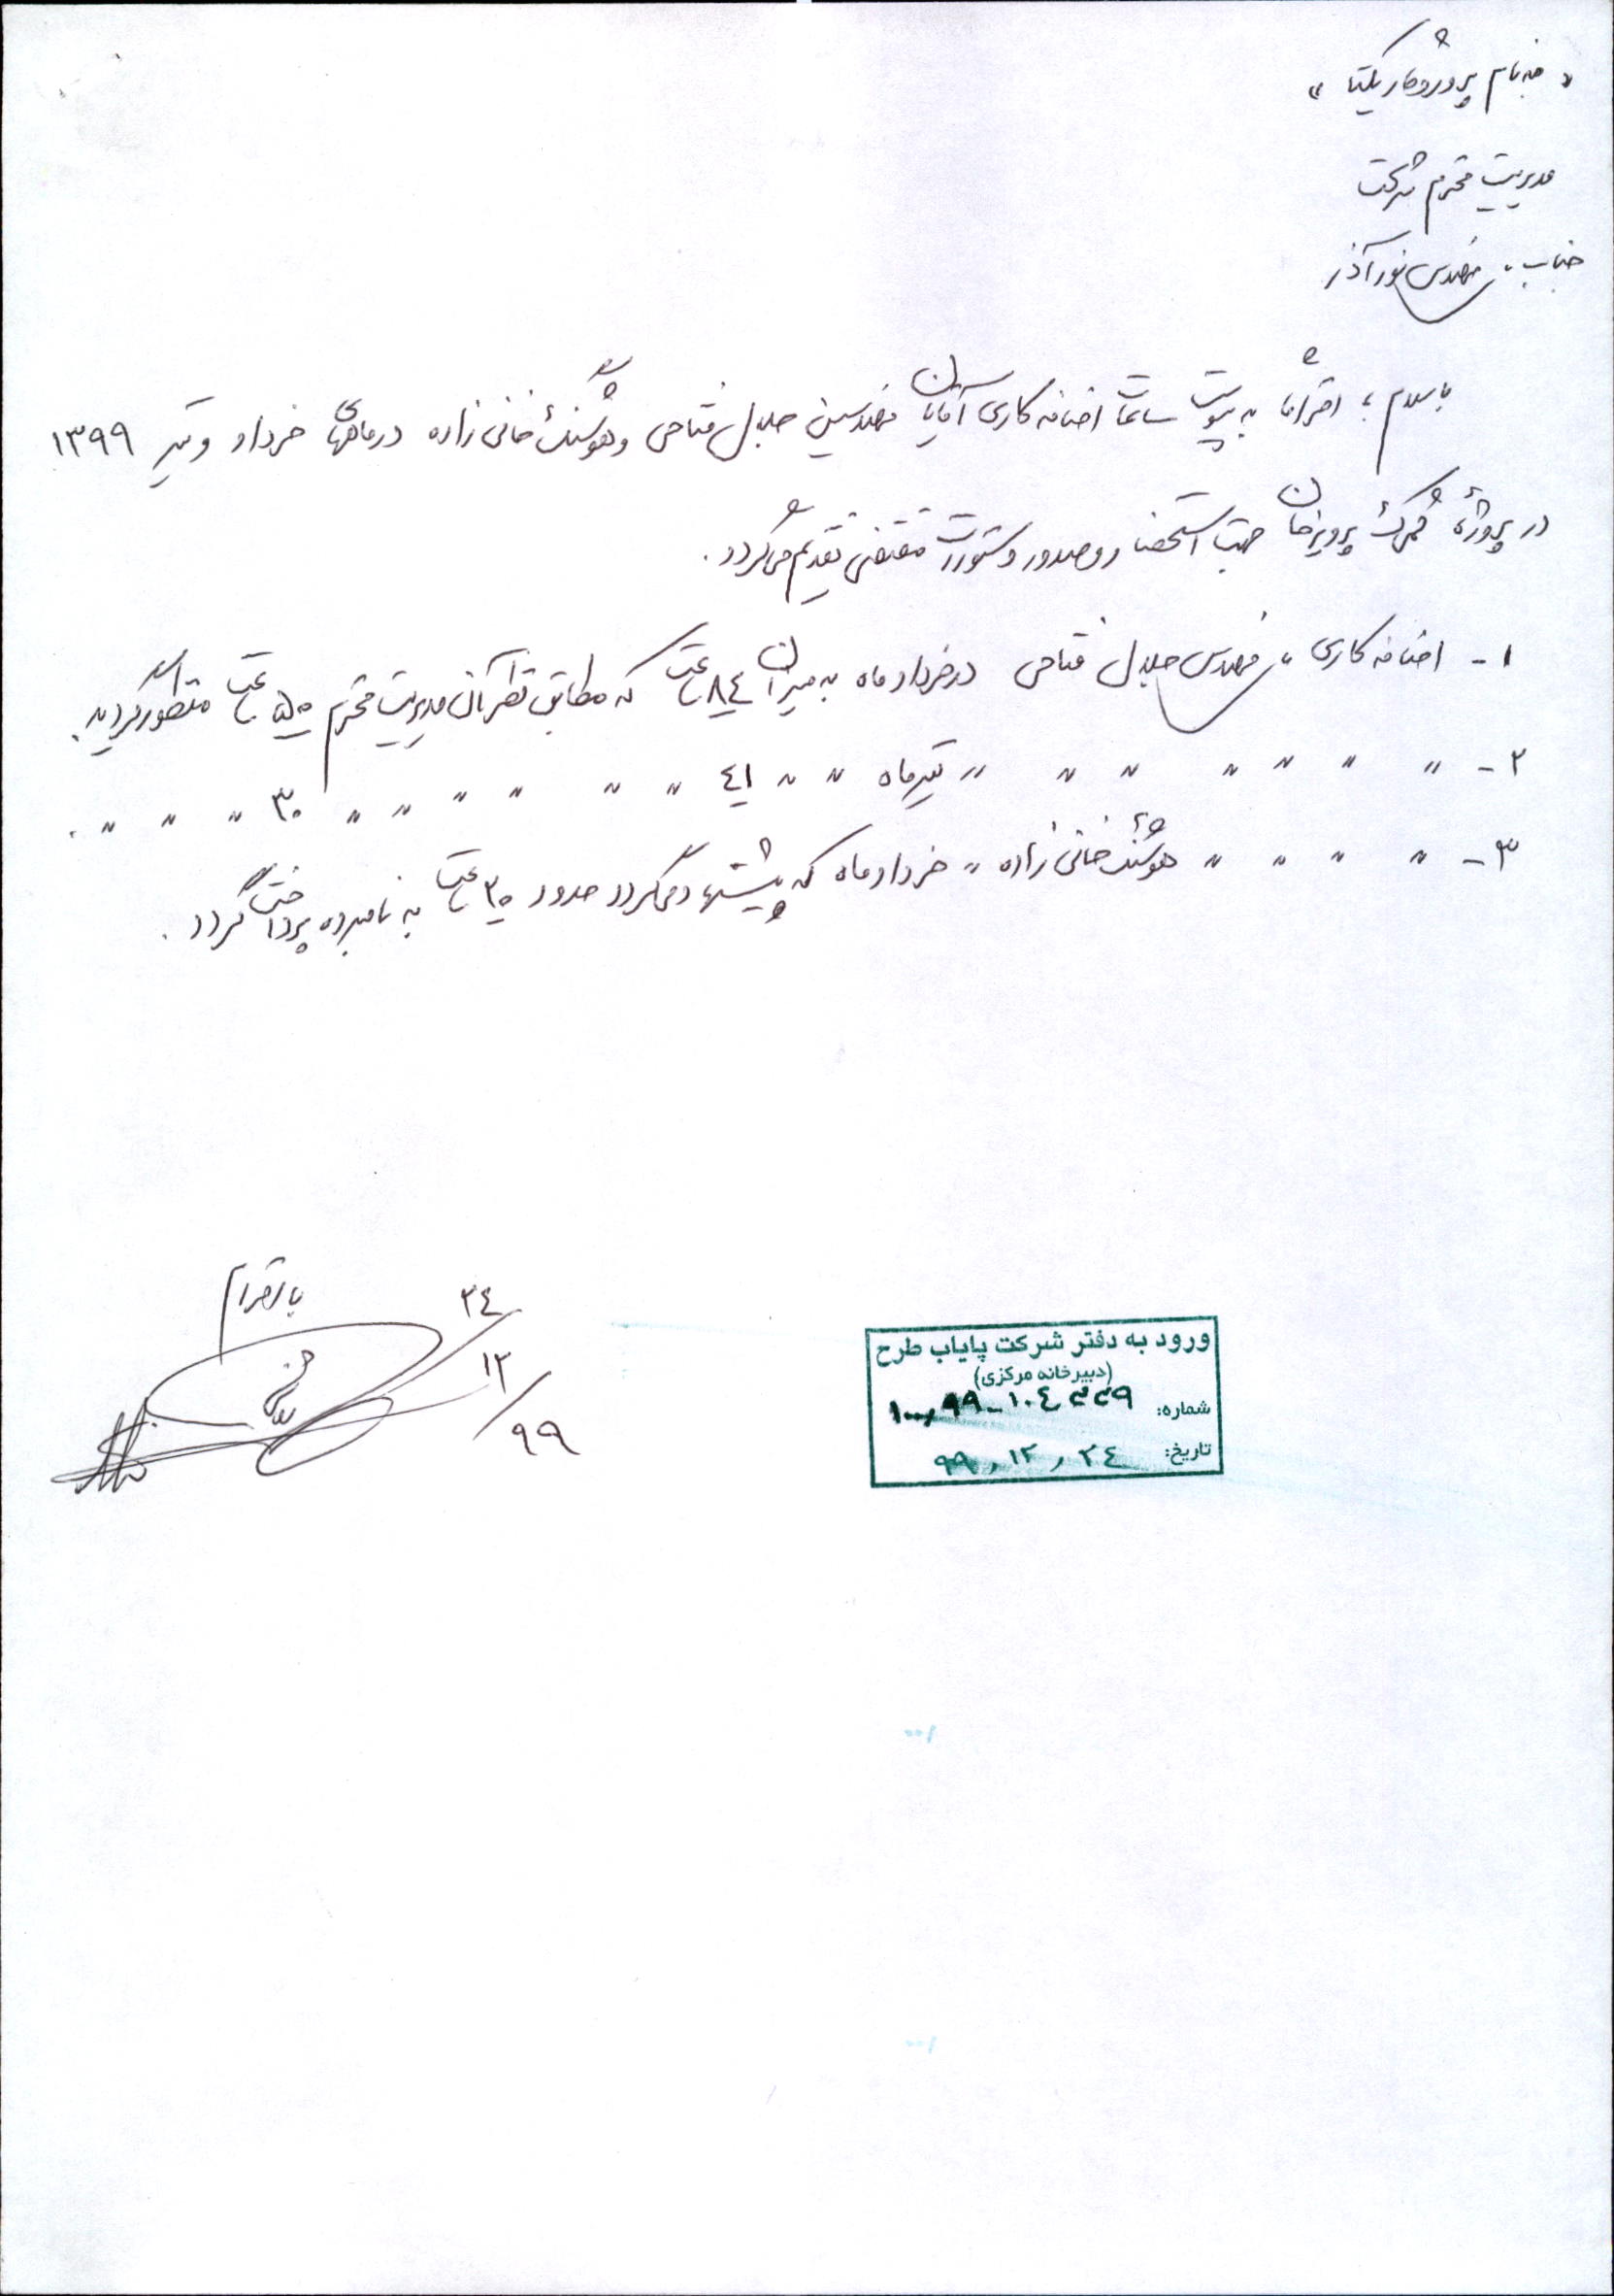 « بنام پروردگار یکتا »
مدیریت محترم شرکت
جناب مهندس نورآذر
با سلام ؛ احتراماً به پیوست ساعات اضافه کاری آقایان مهندسین جلال فتاحی و هوشنگ خانی زاده در ماههای خرداد و تیر ۱۳۹۹
در پروژه گمرک پرویزخان جهت استحضار و صدور دستورات مقتضی تقدیم می گردد .
۱- اضافه کاری " مهندس جلال فتاحی در خرداد ماه به میزان ۸٤ ساعت که مطابق نظر آن مدیریت محترم ۵۰ ساعت منظور گردید .
۲- " " " " " " " تیر ماه " " ٤۱ " " " " " " " ۳۰ " " " .
۳- " " " " هوشنگ خانی زاده " خرداد ماه که پیشنهاد می گردد حدود ۳۰ ساعت به نامبرده پرداخت گردد .
با احترام
۲٤/۱۲/۹۹
ورود به دفتر شرکت پایاب طرح
(دبیرخانه مرکزی)
شماره:
تاریخ: ۹۹,۱۲,۲٤
۱۰۰
۱۰۰